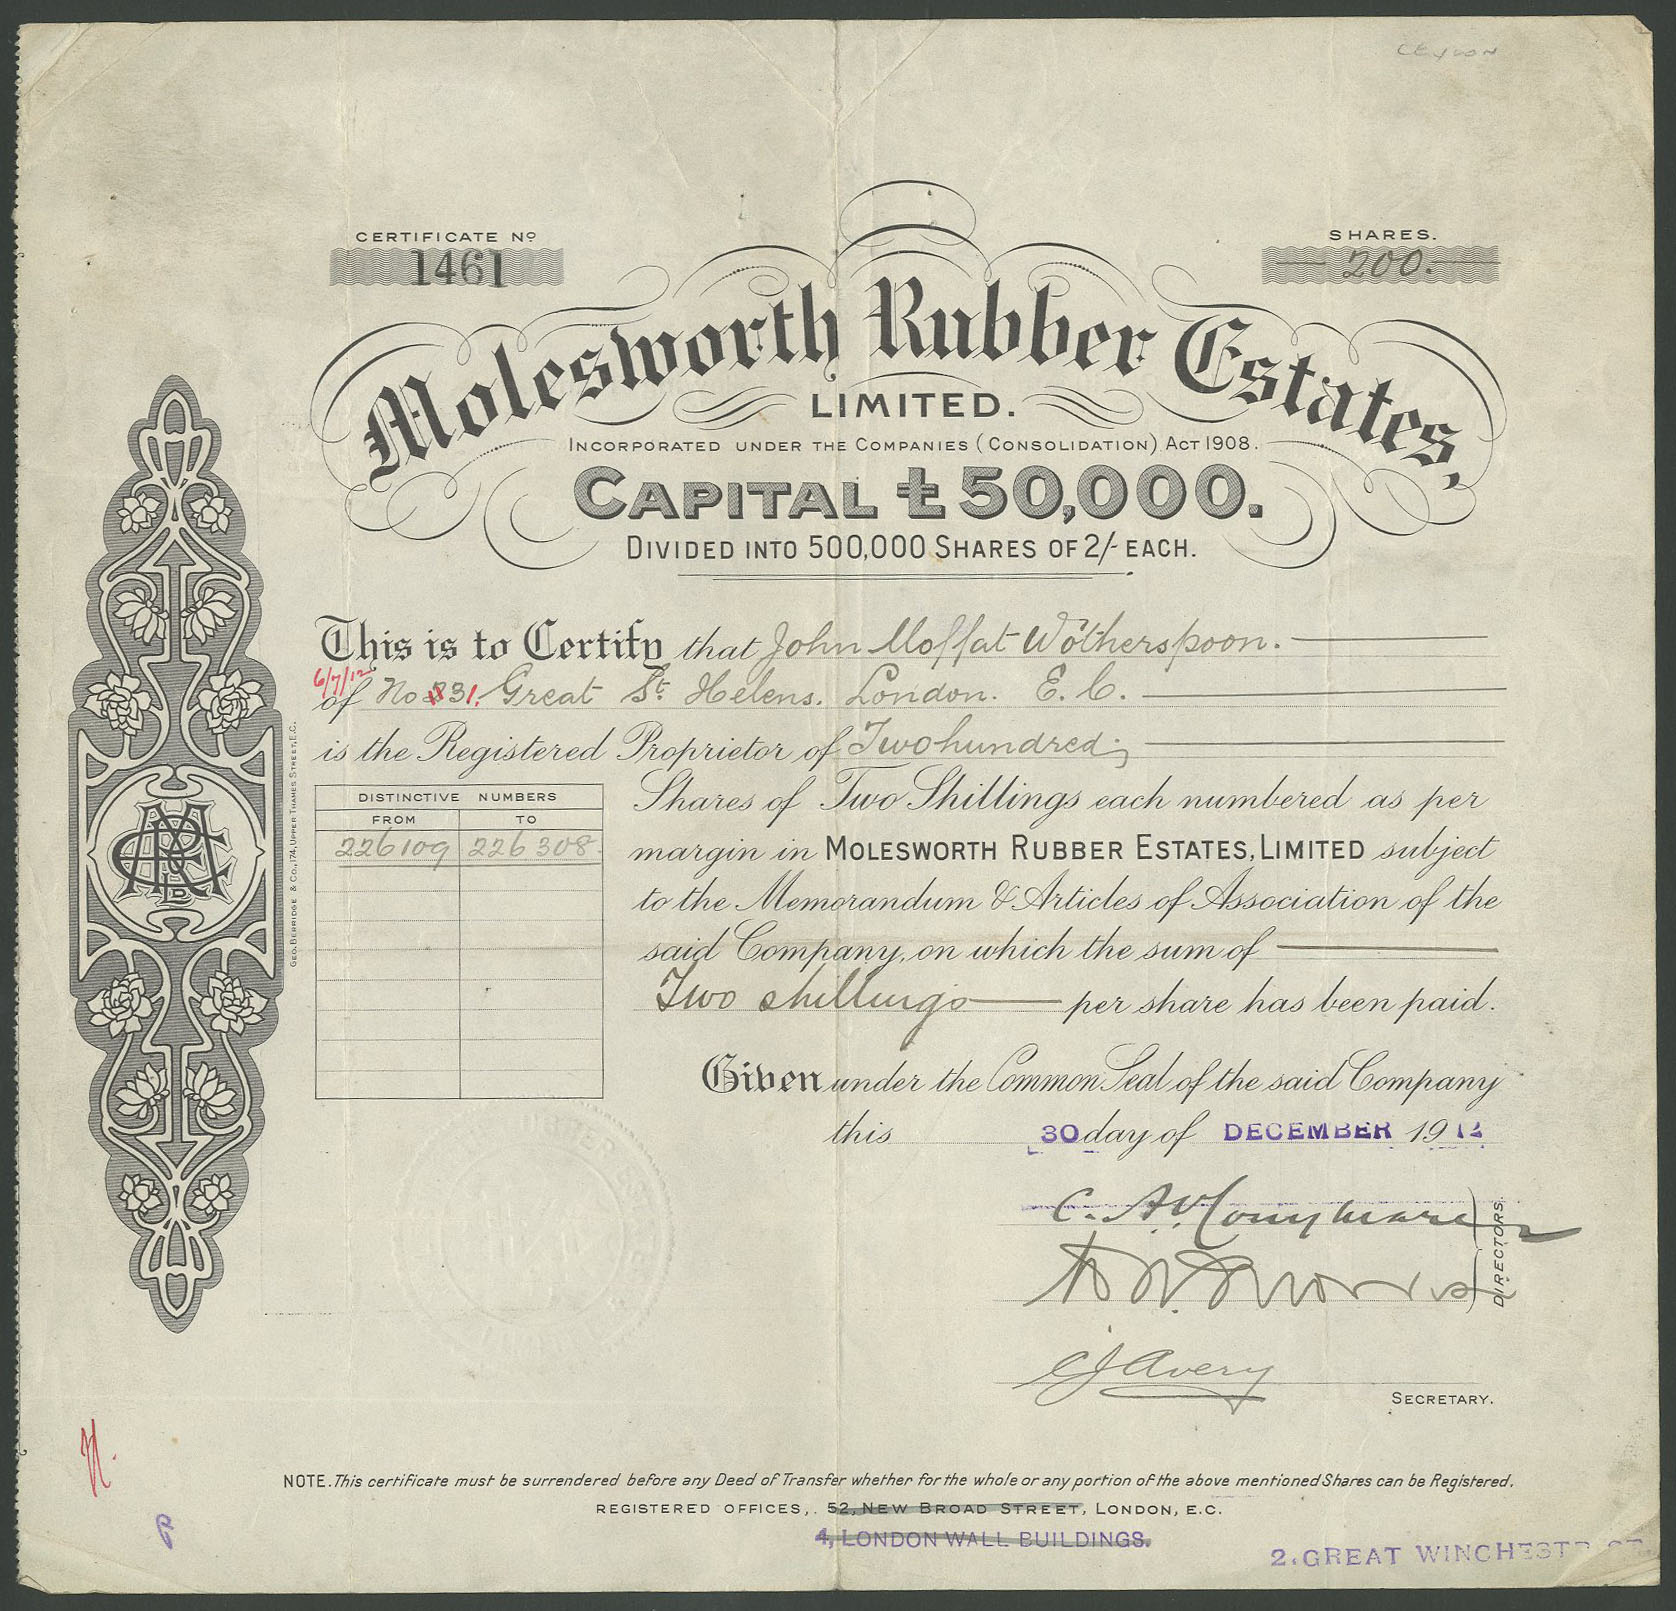 CEYLON
CERTIFICATE No
1461
SHARES.
200.
Molesworth Rubber Estates,
LIMITED.
INCORPORATED UNDER THE COMPANIES (CONSOLIDATION) ACT 1908.
CAPITAL £50,000.
DIVIDED INTO 500,000 SHARES OF 2/- EACH.
This is to Certify that John Moffat Wotherspoon.
6/7/12
of No 31. Great St Helens. London. E.C.
is the Registered Proprietor of Two hundred
DISTINCTIVE NUMBERS
FROM TO
226109 226308
Shares of Two Shillings each numbered as per
margin in MOLESWORTH RUBBER ESTATES, LIMITED subject
to the Memorandum & Articles of Association of the
said Company, on which the sum of
Two shillings per share has been paid.
Given under the Common Seal of the said Company
this 30 day of DECEMBER 1912
DIRECTORS.
C J Avery
SECRETARY.
GEO. BERRIDGE & CO., 174, UPPER THAMES STREET, E.C.
NOTE. This certificate must be surrendered before any Deed of Transfer whether for the whole or any portion of the above mentioned Shares can be Registered.
REGISTERED OFFICES, 52, NEW BROAD STREET, LONDON, E.C.
4, LONDON WALL BUILDINGS.
2, GREAT WINCHEST